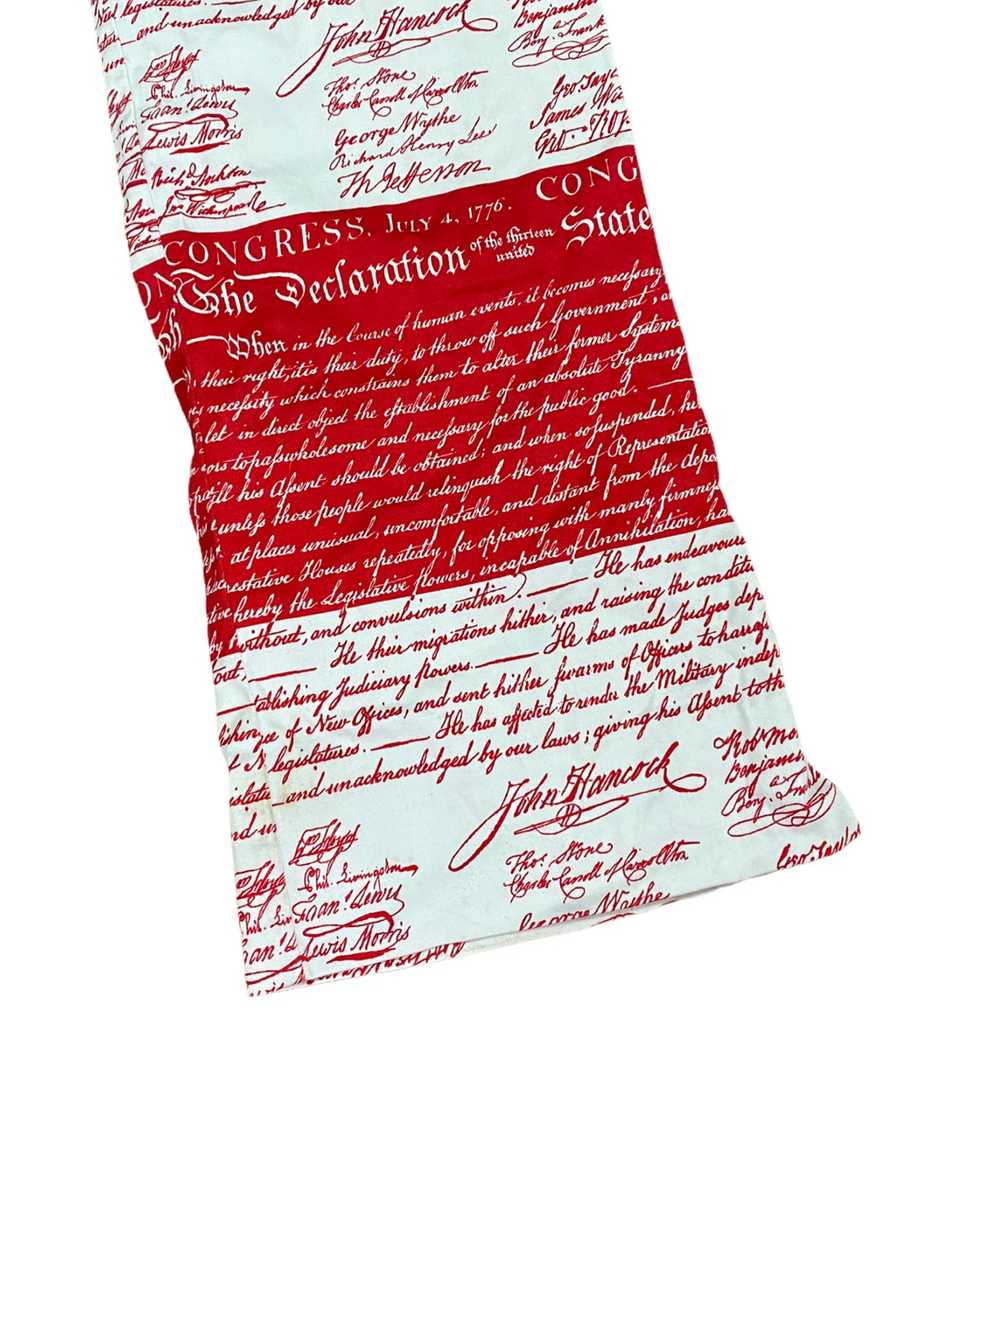 legislatures.
and unacknowledged by our
John Hancock
Benjamin
Benj. Frank
Phil. Livingston
Fran.s Lewis
Lewis Morris
Tho.s Stone
Charles Carroll of Carrollton
George Wythe
Richard Henry Lee
Th Jefferson
Geo Tay
James
Geo
CONGRESS, JULY 4, 1776. CONG
The Declaration of the thirteen united State
When in the Course of human events, it becomes necessary
their right, it is their duty, to throw off such Government, a
necessity which constrains them to alter their former System
let in direct object the establishment of an absolute Tyranny
ors to pass wholesome and necessary for the public good.
till his Assent should be obtained; and when so suspended, he
unless those people would relinquish the right of Representation
at places unusual, uncomfortable, and distant from the depo
restative Houses repeatedly, for opposing with manly firmnes
tive hereby the Legislative Powers, incapable of Annihilation, ha
without, and convulsions within. — He has endeavoure
out, — He their migrations hither, and raising the conditi
ablishing Judiciary Powers. — He has made Judges dep
ee of New Offices, and sent hither swarms of Officers to harrass
legislatures. — He has affected to render the Military indep
and unacknowledged by our laws; giving his Assent to th
John Hancock
Rob.t Mo
Benjamin
Benj. Frankl
Phil. Livingston
Fran.s Lewis
Lewis Morris
Tho.s Stone
Charles Carroll of Carrollton
George Wythe
Geo Taylo